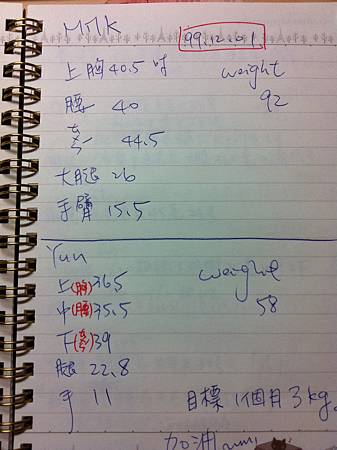 Milk
99.12.01
上胸 40.5 吋
weight
92
腰 40
臀 44.5
大腿 26
手臂 15.5
Yun
上(胸)36.5
weight
中(腰)35.5
58
下(臀)39
腿 22.8
手 11
目標 1個月3kg。
加油